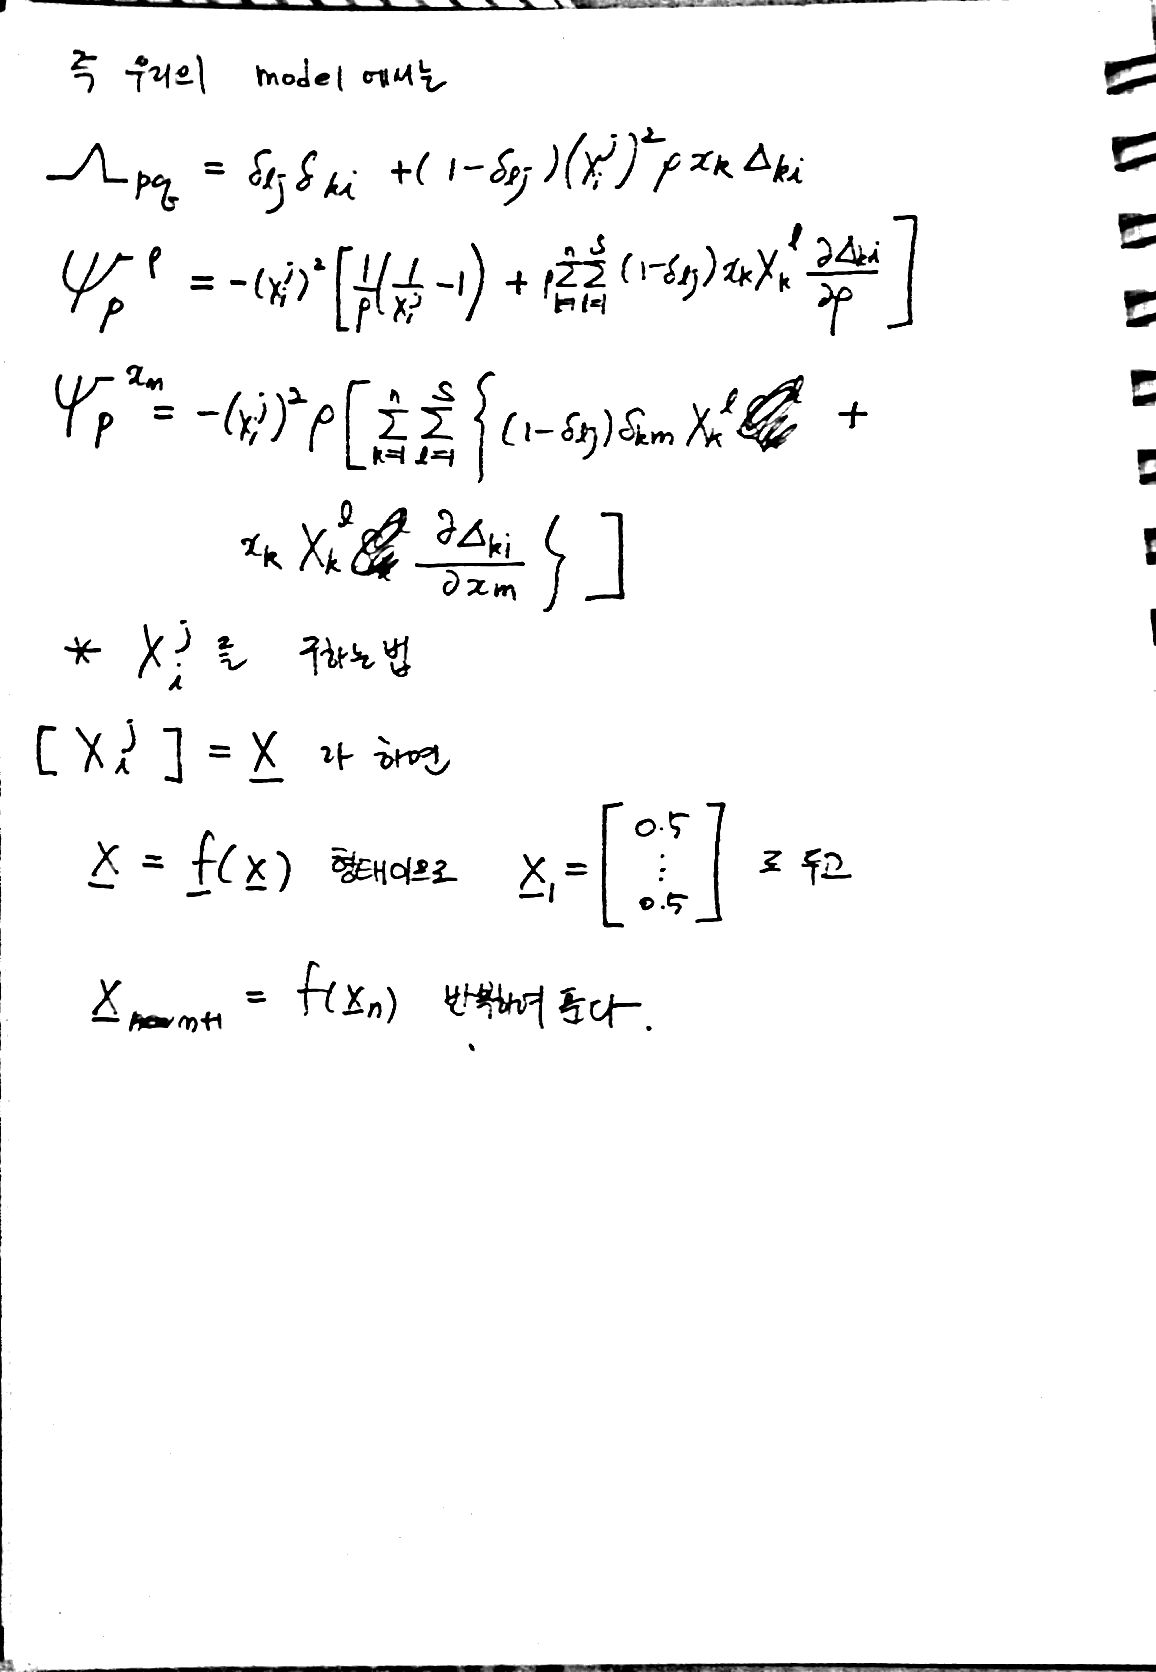 즉 우리의 model 에서는
Λpq = δlj δki + (1-δlj)(Xi^j)^2 ρ xk Δki
Ψp^ρ = -(Xi^j)^2 [ 1/ρ (1/Xi^j - 1) + ρ Σ(k=1)^n Σ(l=1)^S (1-δlj) xk Xk^l ∂Δki/∂ρ ]
Ψp^xm = -(Xi^j)^2 ρ [ Σ(k=1)^n Σ(l=1)^S { (1-δlj) δkm Xk^l +
xk Xk^l ∂Δki/∂xm } ]
* Xi^j 를 구하는법
[ Xi^j ] = X 라 하면
X = f(X) 형태이므로 X1 = [ 0.5 ⋮ 0.5 ] 로 두고
Xn+1 = f(Xn) 반복하여 푼다.